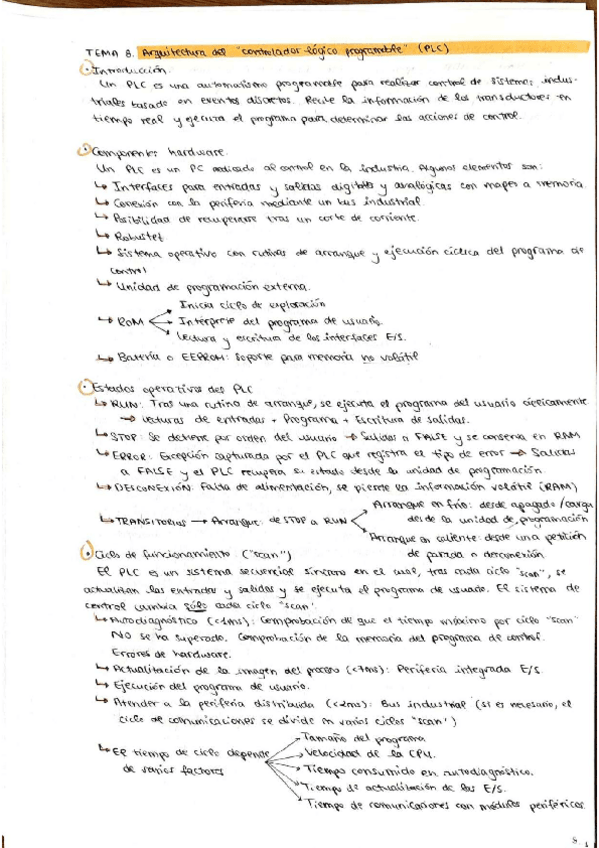 TEMA 8. Arquitectura del "controlador lógico programable" (PLC)
· Introducción.
Un PLC es una automatismo programable para realizar control de sistemas indus-
triales basado en eventos discretos. Recibe la información de los transductores en
tiempo real y ejecuta el programa para determinar las acciones de control.
· Componentes hardware.
Un PLC es un PC dedicado al control en la industria. Algunos elementos son:
↳ Interfaces para entradas y salidas digitales y analógicas con mapeo a memoria.
↳ Conexión con la periferia mediante un bus industrial.
↳ Posibilidad de recuperarse tras un corte de corriente.
↳ Robustez
↳ Sistema operativo con rutinas de arranque y ejecución cíclica del programa de
control
↳ Unidad de programación externa.
Inicia ciclo de exploración
↳ ROM Interprete del programa de usuario.
Lectura y escritura de los interfaces E/S.
↳ Batería o EEPROM: Soporte para memoria no volátil
· Estados operativos del PLC
↳ RUN: Tras una rutina de arranque, se ejecuta el programa del usuario cíclicamente
→ Lecturas de entradas + Programa + Escritura de salidas.
↳ STOP: Se detiene por orden del usuario → Salidas a FALSE y se conserva en RAM
↳ ERROR: Excepción capturada por el PLC que registra el tipo de error → Salidas
a FALSE y el PLC recupera su estado desde la unidad de programación.
↳ DESCONEXIÓN: Falta de alimentación, se pierde la información volátil (RAM)
Arranque en frío: desde apagado/carga
↳ TRANSITORIOS → Arranque: de STOP a RUN desde la unidad de programación
Arranque en caliente: desde una petición
de parada o desconexión
· Ciclo de funcionamiento ("scan")
El PLC es un sistema secuencial síncrono en el cual, tras cada ciclo "scan", se
actualizan las entradas y salidas y se ejecuta el programa de usuario. El sistema de
control cambia sólo cada ciclo "scan".
↳ Autodiagnóstico (<1ms): Comprobación de que el tiempo máximo por ciclo "scan"
NO se ha superado. Comprobación de la memoria del programa de control.
Errores de hardware.
↳ Actualización de la imagen del proceso (<7ms): Periferia integrada E/S.
↳ Ejecución del programa de usuario.
↳ Atender a la periferia distribuida (<2ms): Bus industrial (si es necesario, el
ciclo de comunicaciones se divide en varios ciclos "scan")
Tamaño del programa
↳ El tiempo de ciclo depende Velocidad de la CPU.
de varios factores Tiempo consumido en autodiagnóstico.
Tiempo de actualización de las E/S.
Tiempo de comunicaciones con módulos periféricos.